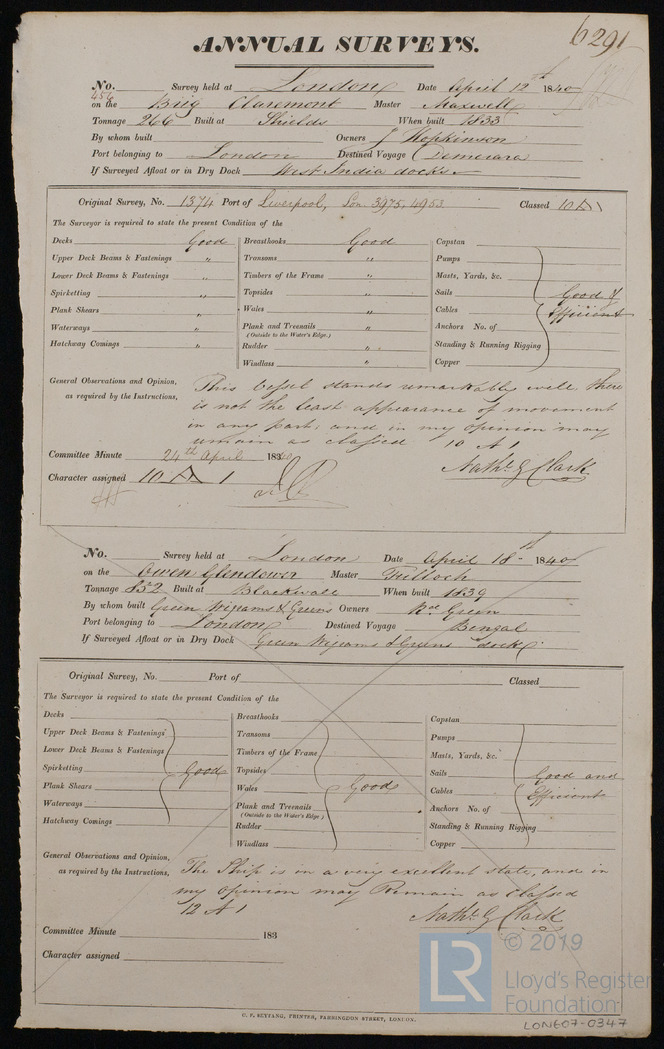 6291
ANNUAL SURVEYS.
No. 456 Survey held at London Date April 12th 1840
on the Brig Claremont Master Maxwell
Tonnage 266 Built at Shields When built 1833
By whom built Owners J Hopkinson
Port belonging to London Destined Voyage Demerara
If Surveyed Afloat or in Dry Dock West India docks
Original Survey, No. 1374 Port of Liverpool, Lon 3975, 4953 Classed 10 A 1
The Surveyor is required to state the present Condition of the
Decks Good Breasthooks Good Capstan
Upper Deck Beams & Fastenings " Transoms " Pumps
Lower Deck Beams & Fastenings " Timbers of the Frame " Masts, Yards, &c.
Spirketting " Topsides " Sails Good &
Plank Shears " Wales " Cables Efficient
Waterways " Plank and Treenails " Anchors No. of
(Outside to the Water's Edge.)
Hatchway Comings " Rudder " Standing & Running Rigging
Windlass " Copper
General Observations and Opinion, This Vessel stands remarkably well, there
as required by the Instructions, is not the least appearance of movement
in any part, and in my opinion may
remain as classed 10 A 1
Committee Minute 24th April 1840 Nathl G Clark
Character assigned 10 A 1
No. Survey held at London Date April 18th 1840
on the Owen Glendower Master Tulloch
Tonnage 852 Built at Blackwall When built 1839
By whom built Green Wigrams & Greens Owners Rd Green
Port belonging to London Destined Voyage Bengal
If Surveyed Afloat or in Dry Dock Green Wigrams & Greens dock
Original Survey, No. Port of Classed
The Surveyor is required to state the present Condition of the
Decks Breasthooks Capstan
Upper Deck Beams & Fastenings Transoms Pumps
Lower Deck Beams & Fastenings Timbers of the Frame Masts, Yards, &c.
Spirketting Good Topsides Sails Good and
Plank Shears Wales Good Cables Efficient
Waterways Plank and Treenails Anchors No. of
(Outside to the Water's Edge)
Hatchway Comings Rudder Standing & Running Rigging
Windlass Copper
General Observations and Opinion, The Ship is in a very excellent state, and in
as required by the Instructions, my opinion may Remain as classed
12 A 1 Nathl G Clark
Committee Minute 183
Character assigned
LR © 2019
Lloyd's Register
Foundation
C. F. SEYFANG, PRINTER, FARRINGDON STREET, LONDON.
LON607-0347